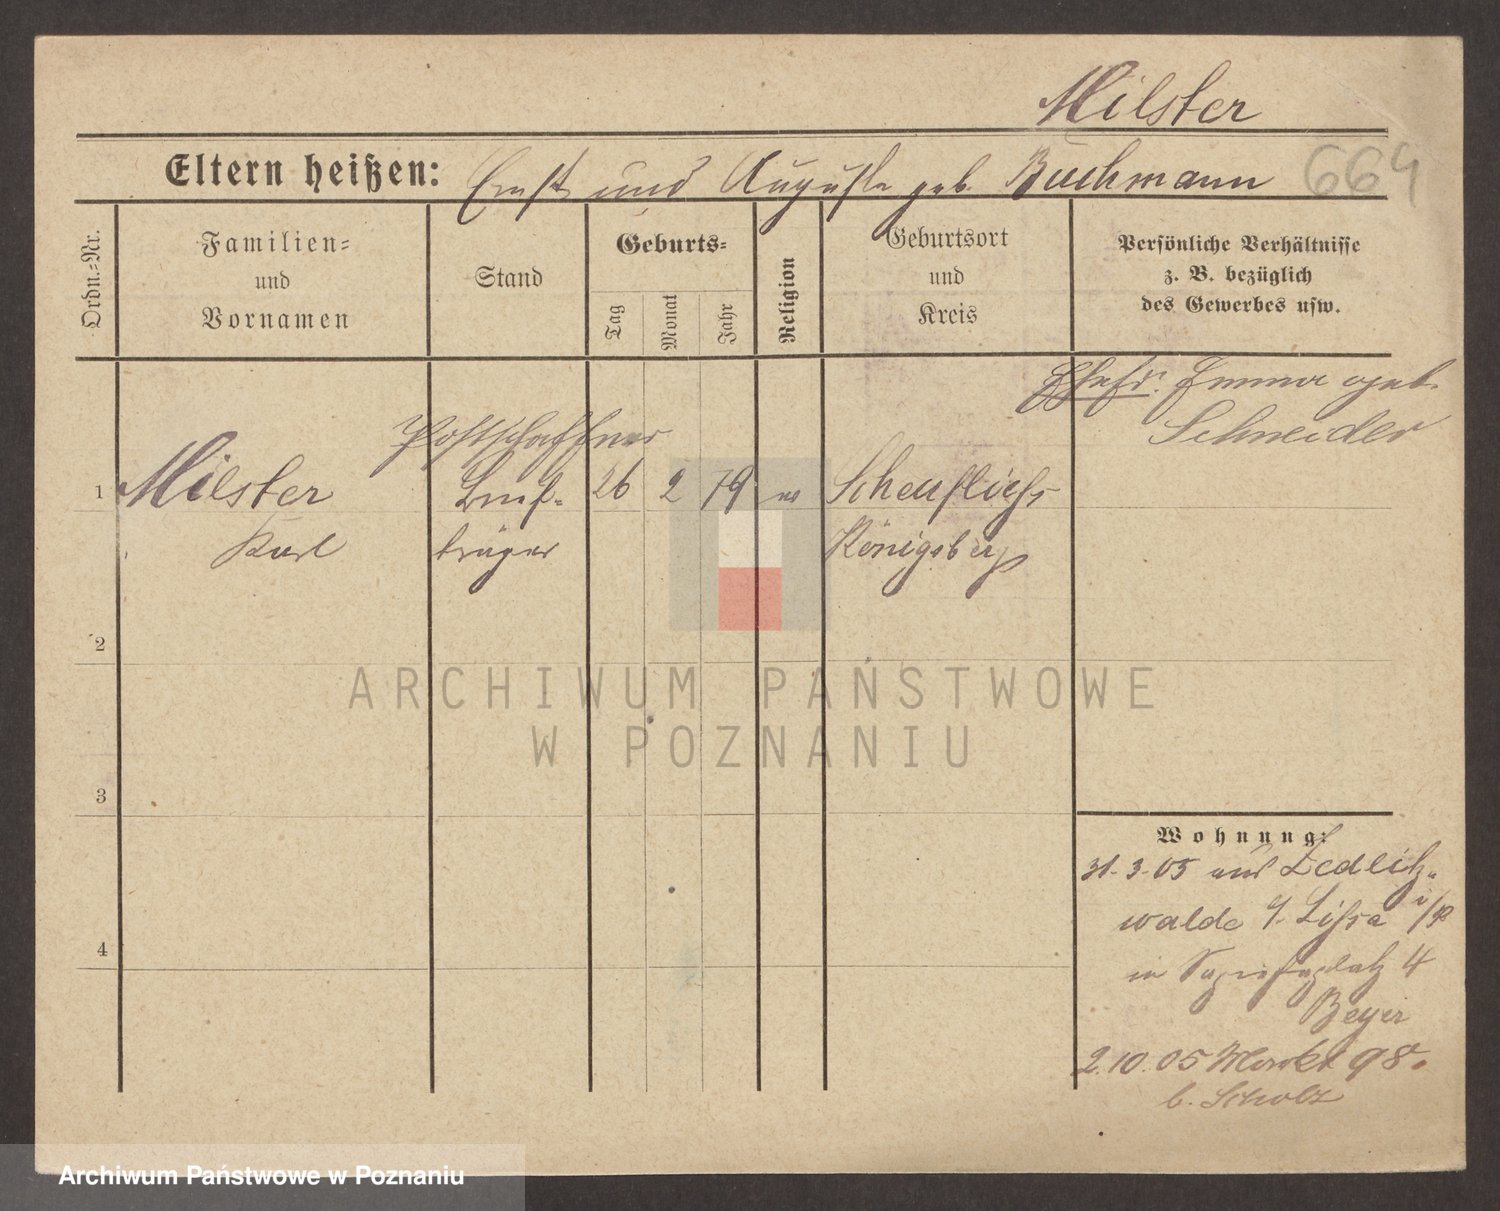 Milster
Eltern heißen: Ernst und Auguste geb. Buchmann 664
Ordn.-Nr.
Familien-
und
Vornamen
Stand
Geburts-
Tag
Monat
Jahr
Religion
Geburtsort
und
Kreis
Persönliche Verhältnisse
z. B. bezüglich
des Gewerbes usw.
Ehefr. Emma geb.
Schneider
Postschaffner
1 Milster Brief- 26 2 79 ev
Karl träger Königsberg
2
3
4
Wohnung:
31.3.05 aus Zedlitz-
walde b. Lissa i/P
in 4
Beyer
2.10.05 Markt 98.
b. Scholz
ARCHIWUM PAŃSTWOWE
W POZNANIU
Archiwum Państwowe w Poznaniu